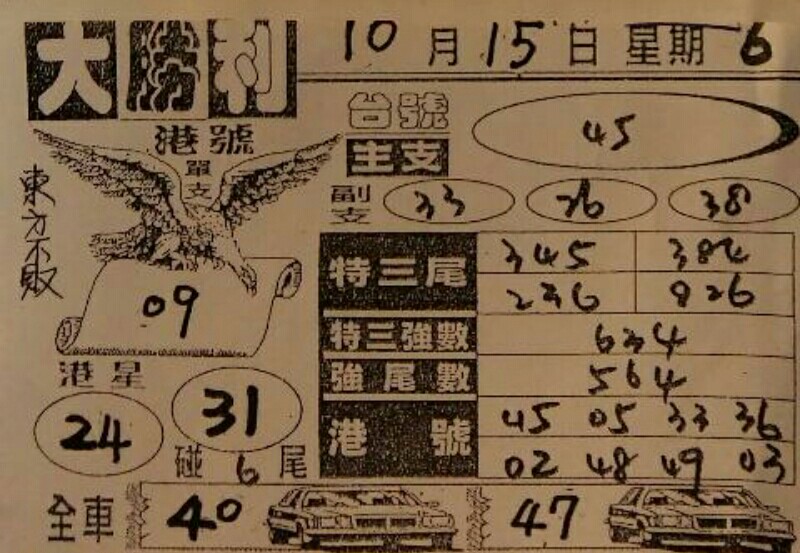 大勝利 10月15日星期6
港號 單支
台號 45
主支
副支 33 26 38
東方不敗
09
特三尾 345 384
236 826
特三強數 634
強尾數 564
港號 45 05 33 36
02 48 49 03
港星
24 31
碰6尾
全車 40 47